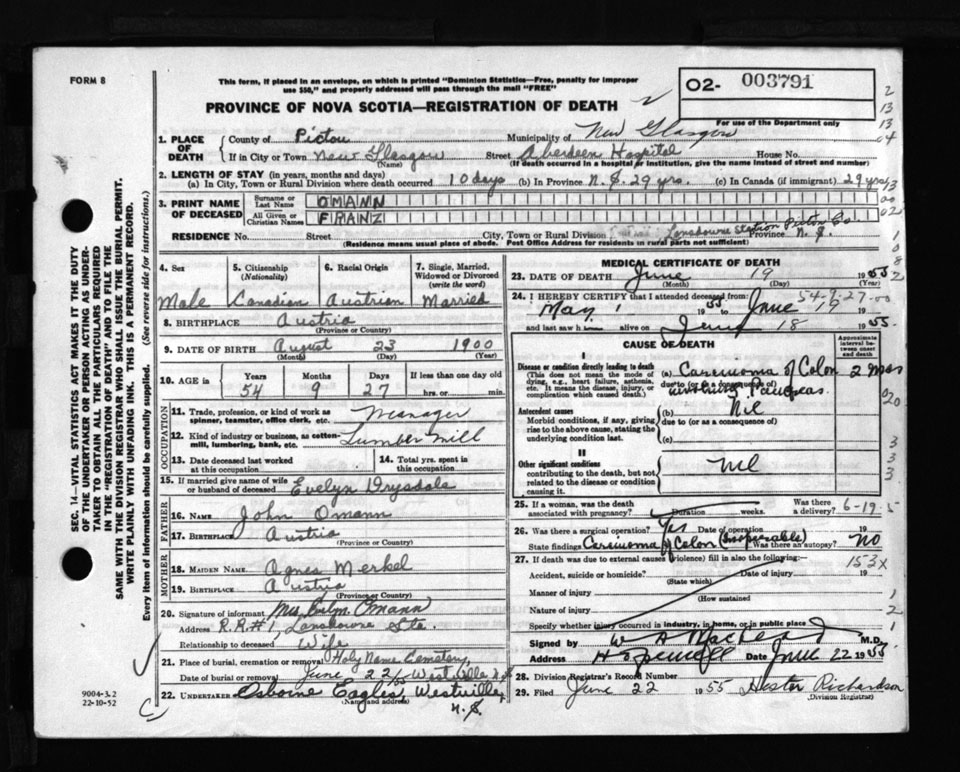 FORM 8
This form, if placed in an envelope, on which is printed "Dominion Statistics—Free, penalty for improper
use $50," and properly addressed will pass through the mail "FREE"
PROVINCE OF NOVA SCOTIA—REGISTRATION OF DEATH
02- 003791
For use of the Department only
2
13
13
04
1. PLACE OF DEATH
County of Pictou Municipality of New Glasgow
If in City or Town New Glasgow Street Aberdeen Hospital House No.
(Name) (If death occurred in a hospital or institution, give the name instead of street and number)
2. LENGTH OF STAY (in years, months and days)
(a) In City, Town or Rural Division where death occurred 10 days (b) In Province N.S. 29 yrs. (c) In Canada (if immigrant) 29 yrs
3. PRINT NAME OF DECEASED
Surname or Last Name OMANN
All Given or Christian Names FRANZ
RESIDENCE No. Street City, Town or Rural Division Lansdowne Station Pictou Co Province N.S.
(Residence means usual place of abode. Post Office Address for residents in rural parts not sufficient)
4. Sex
Male
5. Citizenship (Nationality)
Canadian
6. Racial Origin
Austrian
7. Single, Married, Widowed or Divorced (write the word)
Married
8. BIRTHPLACE Austria
(Province or Country)
9. DATE OF BIRTH August 23 1900
(Month) (Day) (Year)
10. AGE in Years Months Days If less than one day old
54 9 27 hrs. or min.
OCCUPATION
11. Trade, profession, or kind of work as spinner, teamster, office clerk, etc. Manager
12. Kind of industry or business, as cotton-mill, lumbering, bank, etc. Lumber Mill
13. Date deceased last worked at this occupation
14. Total yrs. spent in this occupation
15. If married give name of wife or husband of deceased Evelyn Drysdale
FATHER
16. NAME John Omann
17. BIRTHPLACE Austria
(Province or Country)
MOTHER
18. MAIDEN NAME Agnes Merkel
19. BIRTHPLACE Austria
(Province or Country)
20. Signature of informant Mrs. Evelyn Omann
Address R.R.#1, Lansdowne Sta.
Relationship to deceased Wife
21. Place of burial, cremation or removal Holy Name Cemetery,
Date of burial or removal June 22/55 Westville N.S
22. UNDERTAKER Osborne Eagles, Westville,
(Name and address)
N.S.
MEDICAL CERTIFICATE OF DEATH
23. DATE OF DEATH June 19 1955
(Month) (Day)
54-9-27-00
24. I HEREBY CERTIFY that I attended deceased from:
May 1 1955 to June 19 19
and last saw h alive on June 18 1955.
CAUSE OF DEATH
Approximate interval between onset and death
I
Disease or condition directly leading to death (This does not mean the mode of dying, e.g., heart failure, asthenia, etc. It means the disease, injury, or complication which caused death.)
(a) Carcinoma of Colon 2 mos
due to (or as a consequence of)
involving Pancreas.
Antecedent causes
Morbid conditions, if any, giving rise to the above cause, stating the underlying condition last.
(b) Nil
due to (or as a consequence of)
(c)
II
Other significant conditions contributing to the death, but not related to the disease or condition causing it.
Nil
25. If a woman, was the death associated with pregnancy? Duration weeks. Was there a delivery?
6-19-5
26. Was there a surgical operation? Yes Date of operation 19
State findings Carcinoma of Colon (Inoperable) Was there an autopsy? No
27. If death was due to external causes (violence) fill in also the following:—
153X
Accident, suicide or homicide? Date of injury 19
(State which)
Manner of injury
(How sustained)
Nature of injury
Specify whether injury occurred in industry, in home, or in public place
Signed by W A MacLeod M.D.
Address Hopewell Date June 22 1955
28. Division Registrar's Record Number
29. Filed June 22 1955 Hester Richardson
(Division Registrar)
SEC. 14—VITAL STATISTICS ACT MAKES IT THE DUTY
OF THE UNDERTAKER OR PERSON ACTING AS UNDER-
TAKER TO OBTAIN ALL THE PARTICULARS REQUIRED
IN THE "REGISTRATION OF DEATH" AND TO FILE THE
SAME WITH THE DIVISION REGISTRAR WHO SHALL ISSUE THE BURIAL PERMIT.
WRITE PLAINLY WITH UNFADING INK. THIS IS A PERMANENT RECORD.
Every item of information should be carefully supplied. (See reverse side for instructions.)
9004-3.2
22-10-52